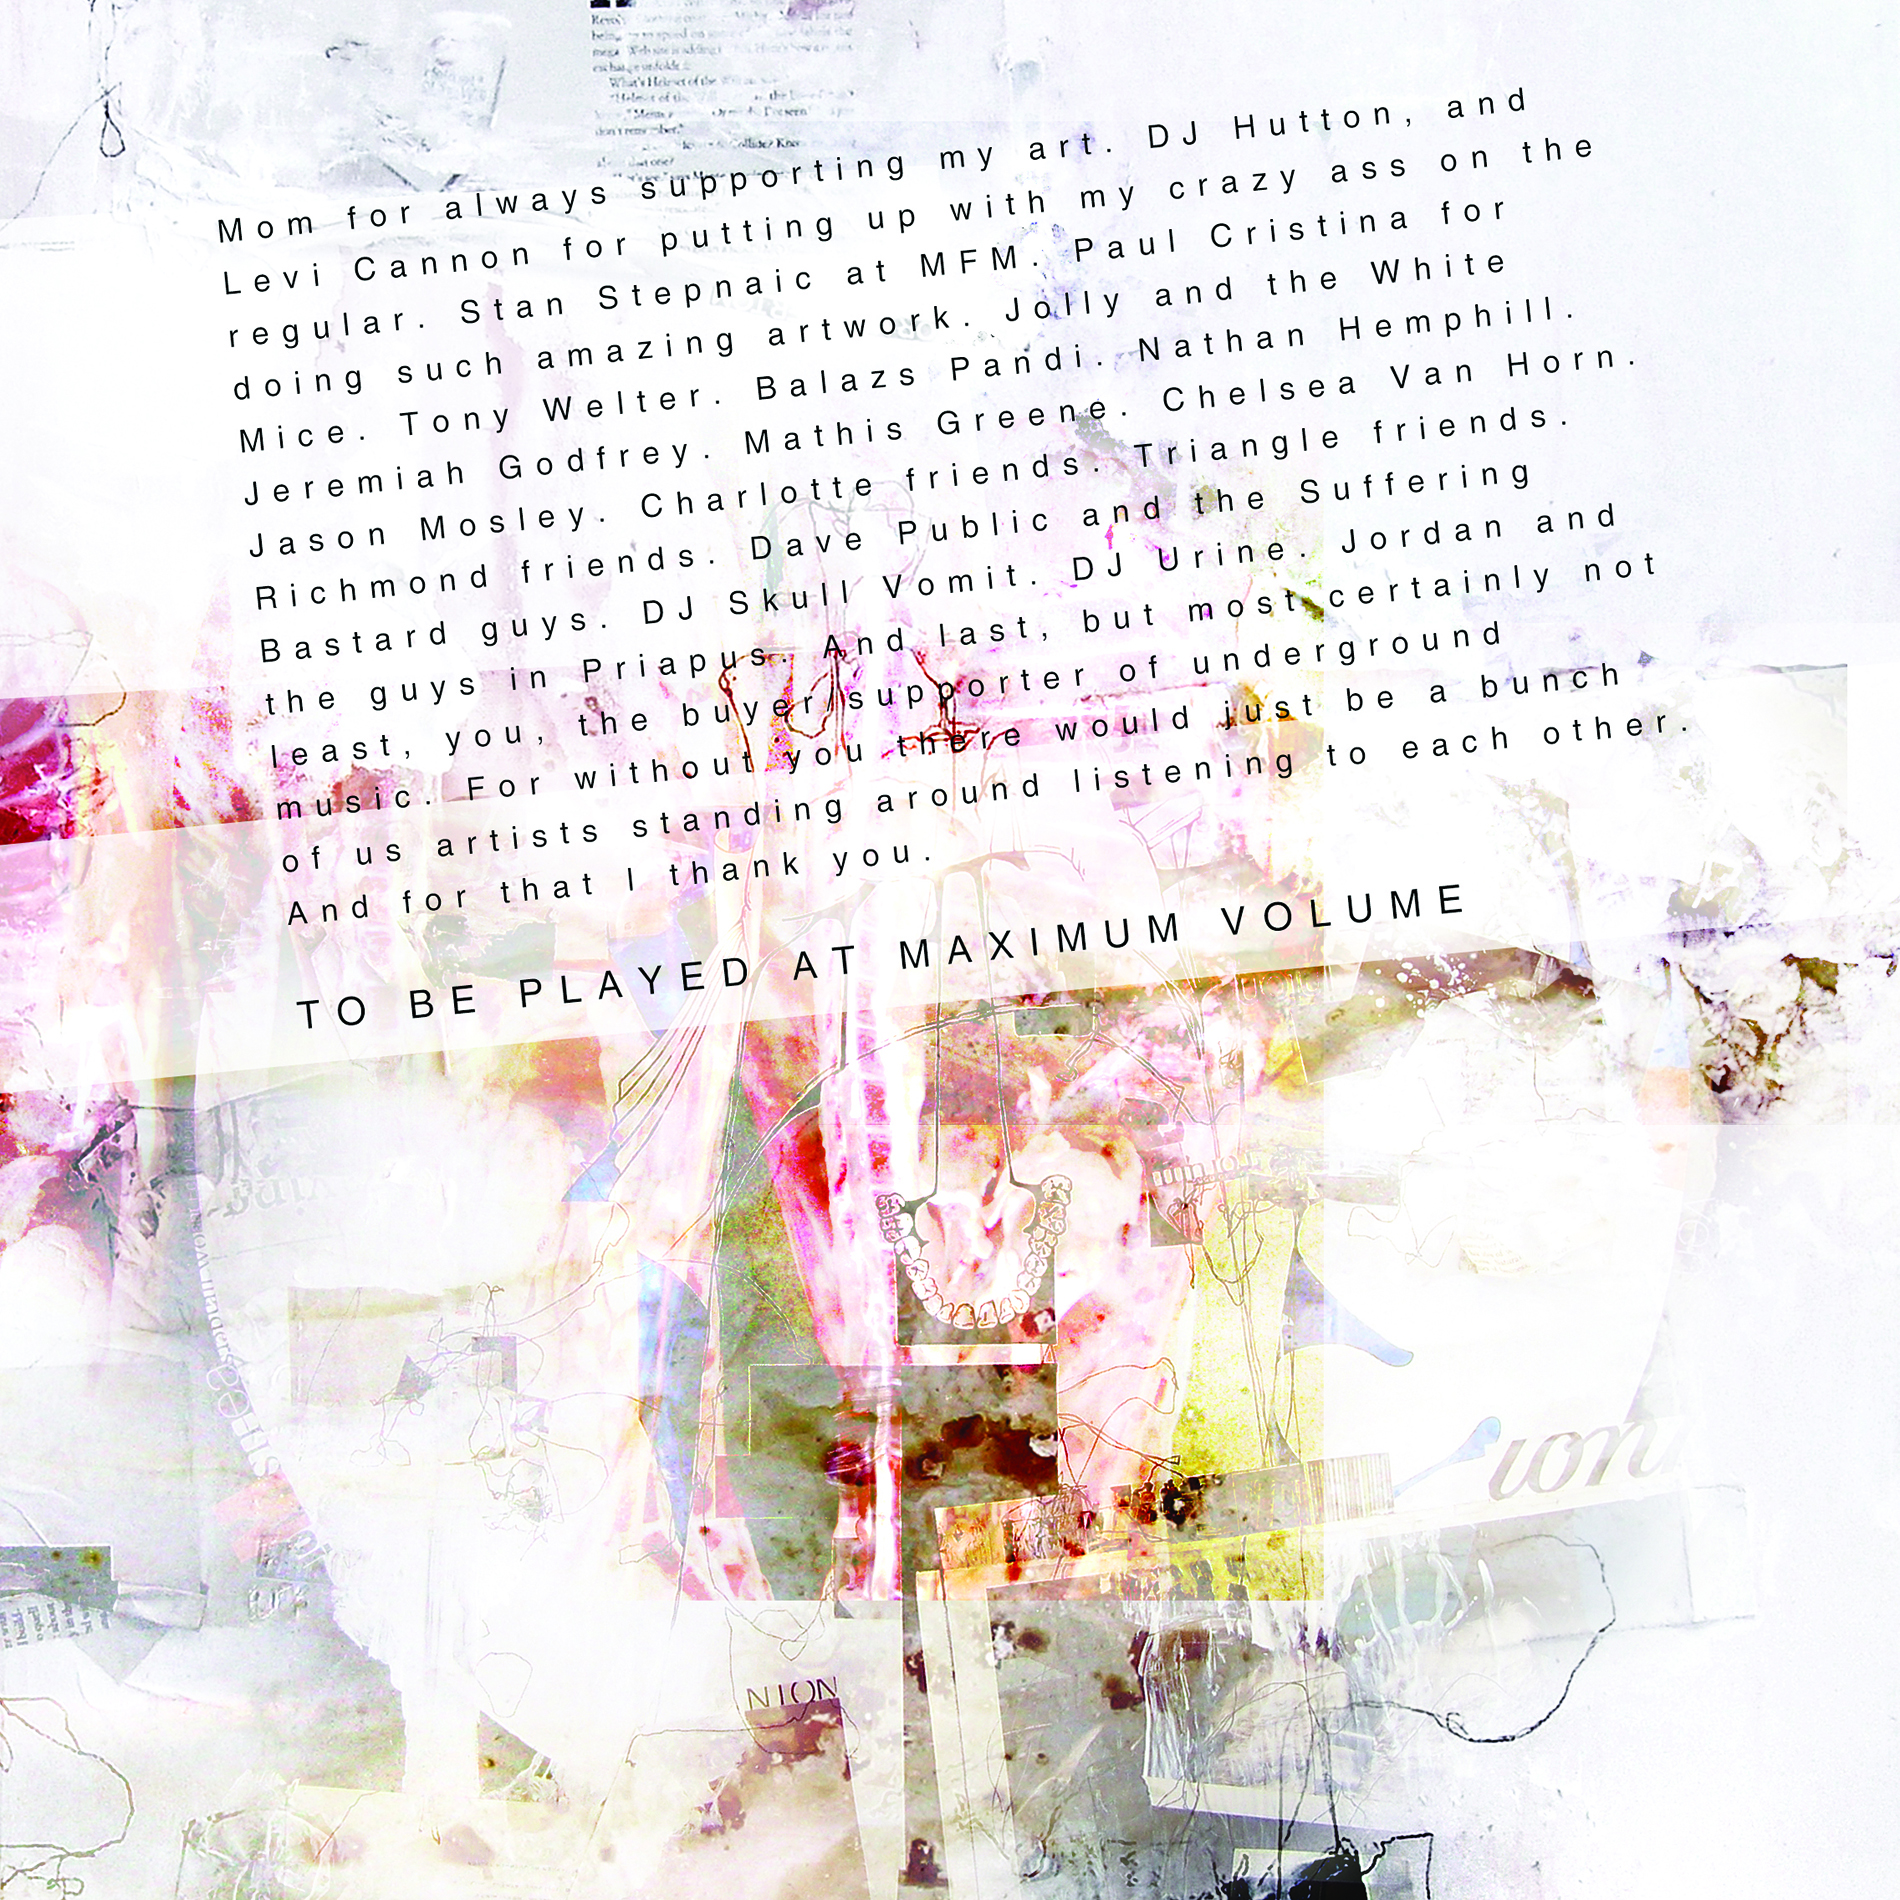 What's Helmet of the
"Helmet of the
Mom for always supporting my art. DJ Hutton, and
Levi Cannon for putting up with my crazy ass on the
regular. Stan Stepnaic at MFM. Paul Cristina for
doing such amazing artwork. Jolly and the White
Mice. Tony Welter. Balazs Pandi. Nathan Hemphill.
Jeremiah Godfrey. Mathis Greene. Chelsea Van Horn.
Jason Mosley. Charlotte friends. Triangle friends.
Richmond friends. Dave Public and the Suffering
Bastard guys. DJ Skull Vomit. DJ Urine. Jordan and
the guys in Priapus. And last, but most certainly not
least, you, the buyer/supporter of underground
music. For without you there would just be a bunch
of us artists standing around listening to each other.
And for that I thank you.
TO BE PLAYED AT MAXIMUM VOLUME
NION